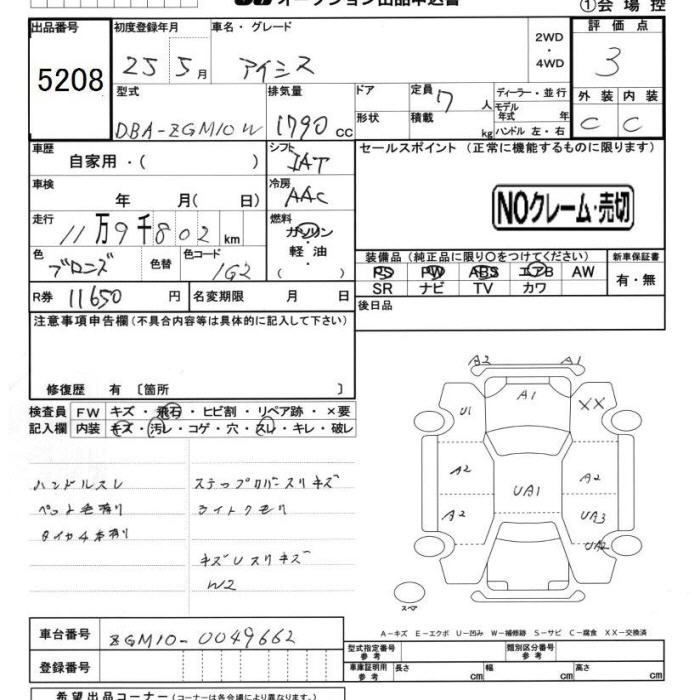 オークション出品申込書
①会場控
出品番号 初度登録年月 車名・グレード 2WD ・ 4WD 評価点
5208 25 5月 アイシス 3
型式 排気量 ドア 定員 7 人 ディーラー・並行 外装 内装
DBA-ZGM10W 1790 cc 形状 積載 kg モデル年式 年 ハンドル 左・右 C C
車歴 自家用・( ) シフト IAT セールスポイント (正常に機能するものに限ります)
車検 年 月( 日) 冷房 AAC
NOクレーム・売切
走行 11万9千802 km 燃料 ガソリン 軽油 ( )
色 ブロンズ 色替 色コード 1G2
装備品 (純正品に限り○をつけてください) 新車保証書
PS PW ABS エアB AW 有・無
SR ナビ TV カワ
R券 11650 円 名変期限 月 日
後日品
注意事項申告欄 (不具合内容等は具体的に記入して下さい)
修復歴 有 〔箇所 〕
検査員 FW キズ・飛石・ヒビ割・リペア跡・×要
記入欄 内装 キズ・汚レ・コゲ・穴・スレ・キレ・破レ
ハンドルスレ ステップカバースリキズ
ペット毛有り ライトクモリ
タイヤ4本有り
キズUスリキズ
W2
A2 A1
A1
U1 XX
A2 A2
UA1
A2 UA3
UA2
スペア
A-キズ E-エクボ U-凹み W-補修跡 S-サビ C-腐食 XX-交換済
車台番号 ZGM10-0049662
型式指定番号 参考 類別区分番号 参考
登録番号
車庫証明用 参考 長さ cm 幅 cm 高さ cm
希望出品コーナー (コーナーは各会場により異なります。)